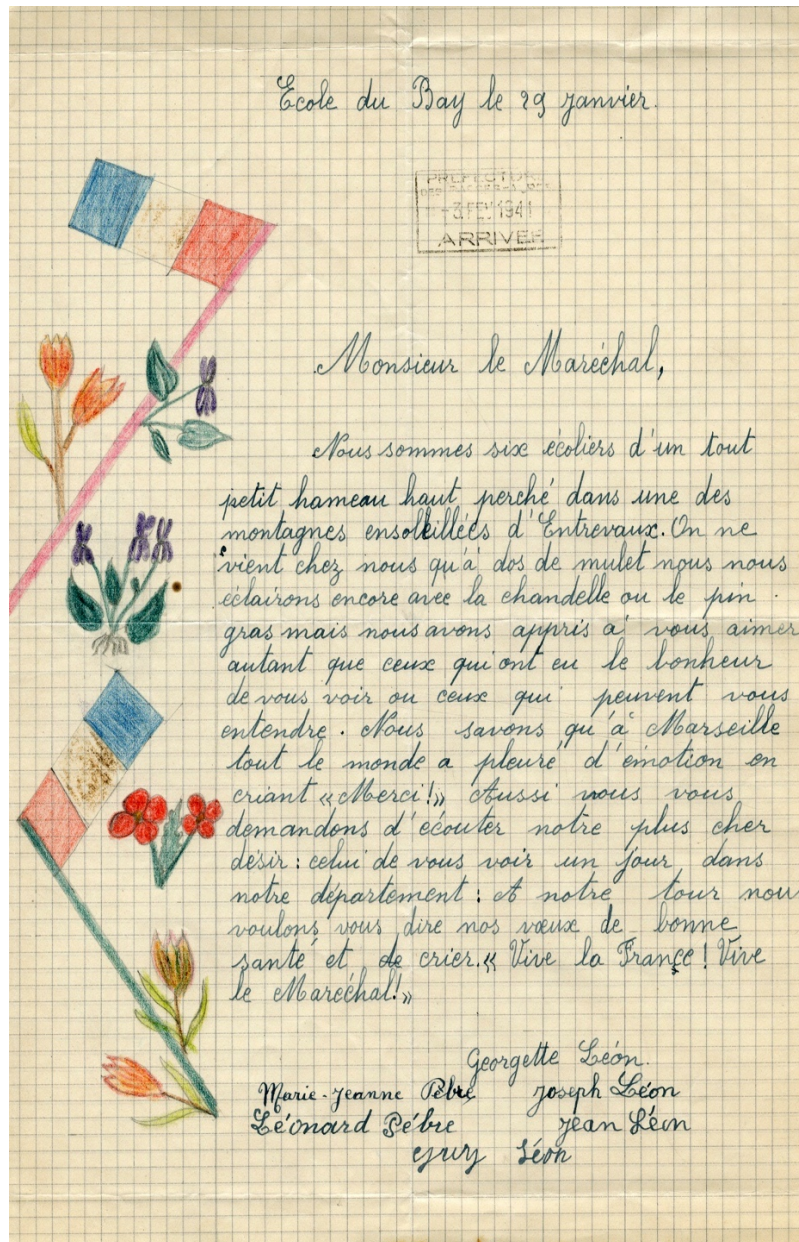 Ecole du Bay le 29 janvier.
PREFECTURE
DES BASSES-ALPES
-3 FEV 1941
ARRIVEE
Monsieur le Maréchal,
Nous sommes six écoliers d'un tout
petit hameau haut perché dans une des
montagnes ensoleillées d'Entrevaux. On ne
vient chez nous qu'à dos de mulet nous nous
éclairons encore avec la chandelle ou le pin
gras mais nous avons appris à vous aimer
autant que ceux qui ont eu le bonheur
de vous voir ou ceux qui peuvent vous
entendre. Nous savons qu'à Marseille
tout le monde a pleuré d'émotion en
criant «Merci!» Aussi nous vous
demandons d'écouter notre plus cher
désir : celui de vous voir un jour dans
notre département : A notre tour nous
voulons vous dire nos vœux de bonne
santé et de crier. « Vive la France ! Vive
le Maréchal!»
Georgette Léon.
Marie-Jeanne Pébre Joseph Léon
Léonard Pébre Jean Léon
Guy Léon